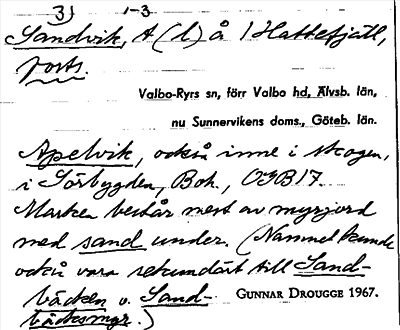 3) 1-3
Sandvik, t (l) å 1 Hattefjäll,
forts.
Valbo-Ryrs sn, förr Valbo hd, Älvsb. län,
nu Sunnervikens doms., Göteb. län.
Apelvik, också inne i skogen,
i Sörbygden, Boh., OGB 17.
Marken består mest av myrjord
med sand under. (Namnet kunde
också vara sekundärt till Sand-
bäcken o. Sand-
GUNNAR DROUGGE 1967.
bäcksmyr.)